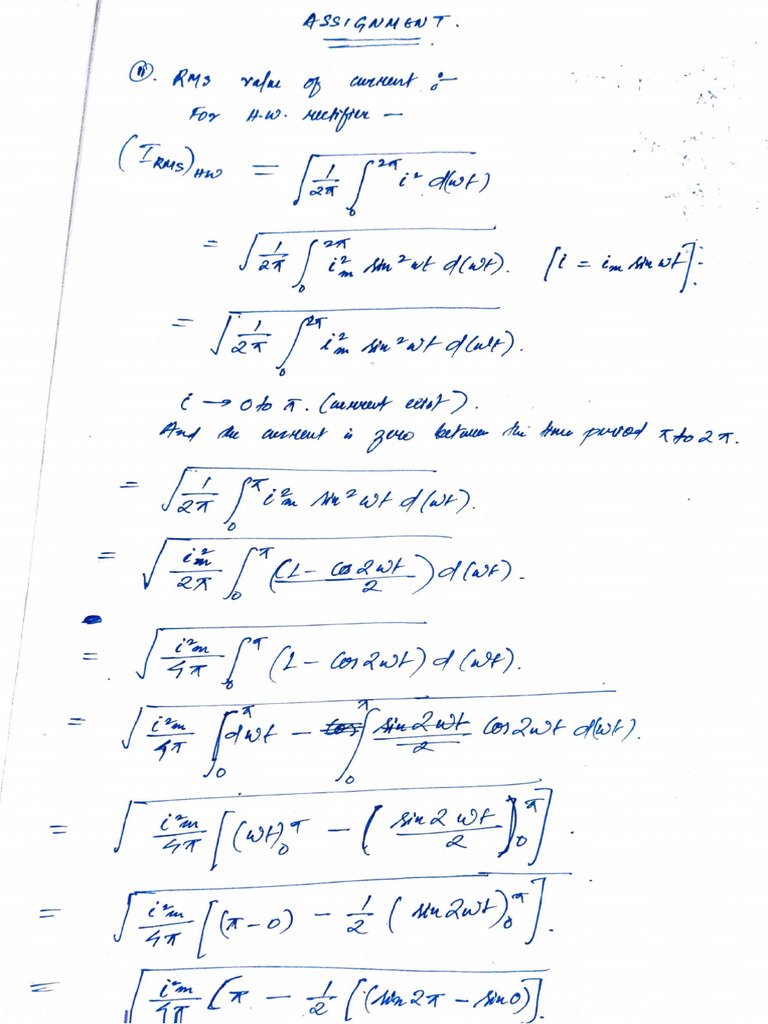 ASSIGNMENT.
(ii). RMS value of current :-
For H.W. rectifier —
(I_RMS)_HW = √(1/2π ∫₀^2π i² d(ωt))
= √(1/2π ∫₀^2π i²m sin²ωt d(ωt)). [i = im sin ωt]:
= √(1/2π ∫₀^2π i²m sin²ωt d(ωt)).
i → 0 to π. (current exist).
And the current is zero between the time period π to 2π.
= √(1/2π ∫₀^π i²m sin²ωt d(ωt)).
= √(i²m/2π ∫₀^π (1 - cos2ωt / 2) d(ωt)).
= √(i²m/4π ∫₀^π (1 - cos2ωt) d(ωt)).
= √(i²m/4π ∫₀^π dωt - ∫₀^π sin2ωt/2 cos2ωt d(ωt)).
= √(i²m/4π [(ωt)₀^π - (sin2ωt / 2)₀^π]).
= √(i²m/4π [(π-0) - 1/2 (sin2ωt)₀^π]).
= √(i²m/4π [π - 1/2 [(sin2π - sin0)]